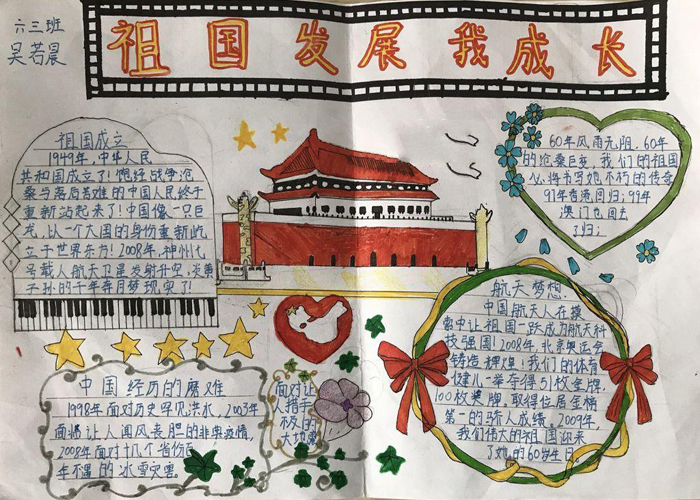 六三班
吴若晨
祖国发展我成长
祖国成立
1949年,中华人民
共和国成立了!饱经战争沧
桑与落后苦难的中国人民终于
重新站起来了!中国像一只巨
龙,以一个大国的身份重新屹
立于世界东方!2008年,神州七
号载人航天卫星发射升空,炎黄
子孙的千年奔月梦现实了!
60年风雨无阻,60年
的沧桑巨变,我们的祖国
必将书写她不朽的传奇
97年香港回归;99年
澳门也回去
了归;
航天梦想.
中国航天人在摸
索中让祖国一跃成为航天科
技强国!2008年,北京奥运会
铸造辉煌!我们的体育
健儿一举夺得51枚金牌,
100枚奖牌,取得位居金榜
第一的骄人成绩。2009年,
我们伟大的祖国迎来
了她的60岁生日。
中国经历的磨难
1998年面对历史罕见洪水,2003年
面临让人闻风丧胆的非典疫情,
2008年面对十几个省份百
年不遇的冰雪灾害。
面对让
人措手
不及的
大地震